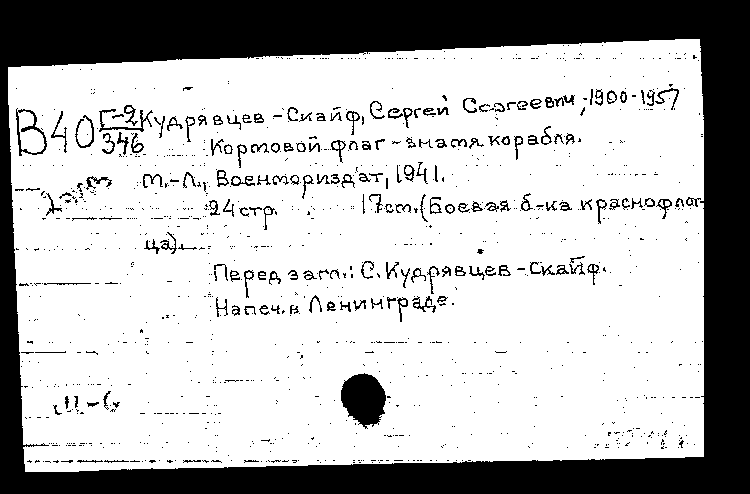 В40 Г-2/346 Кудрявцев-Скайф, Сергей Сергеевич, 1900-1957
Кормовой флаг - знамя корабля.
М.-Л., Военмориздат, 1941.
24 стр. 17 см. (Боевая б-ка краснофлот-
ца).
Перед загл.: С. Кудрявцев-Скайф.
Напеч. в Ленинграде.